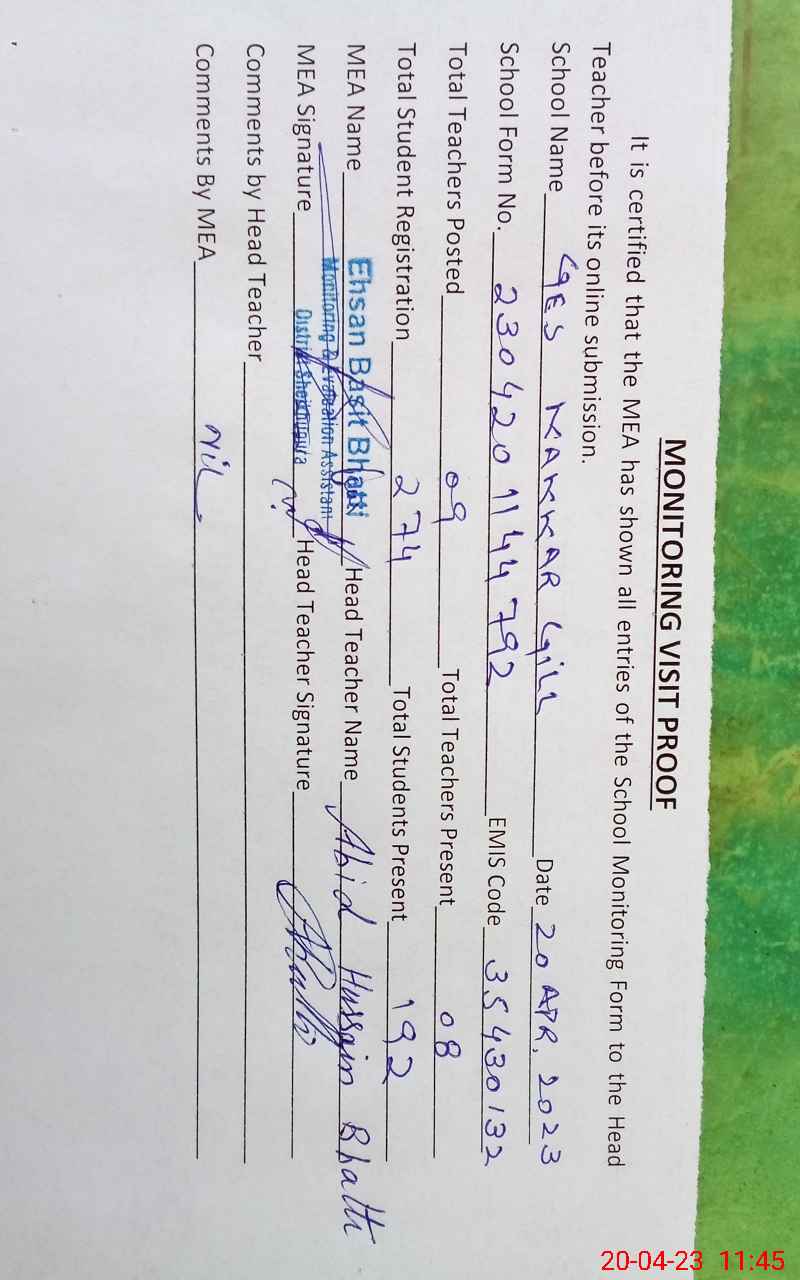 MONITORING VISIT PROOF
It is certified that the MEA has shown all entries of the School Monitoring Form to the Head
Teacher before its online submission.
School Name GES MAKKAR Gill Date 20 APR, 2023
School Form No. 2304201144792 EMIS Code 35430132
Total Teachers Posted 09 Total Teachers Present 08
Total Student Registration 274 Total Students Present 192
MEA Name Ehsan Basit Bhatti Head Teacher Name Abid Hussain Bhatti
Monitoring & Evaluation Assistant
MEA Signature District Sheikhupura Head Teacher Signature
Comments by Head Teacher
Comments By MEA Nil
20-04-23 11:45